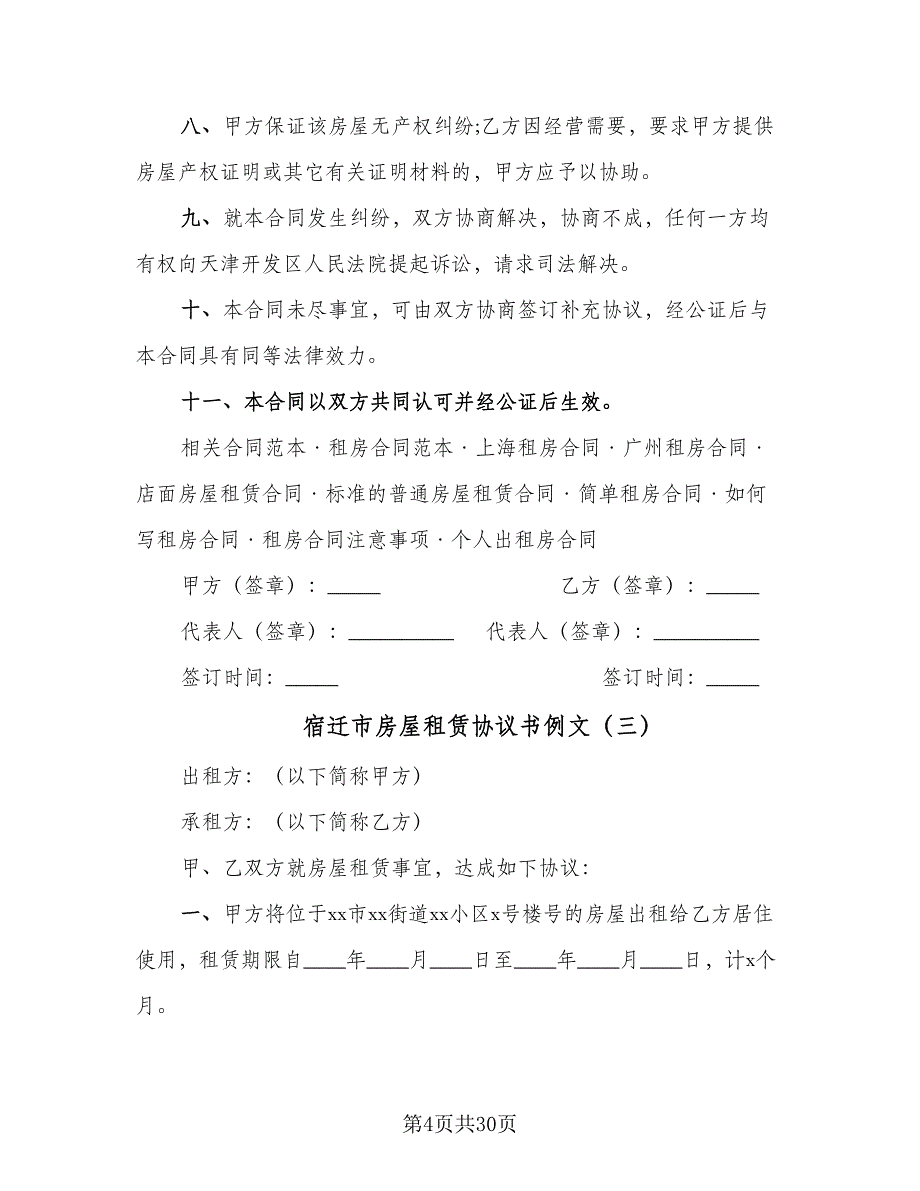 八、甲方保证该房屋无产权纠纷;乙方因经营需要，要求甲方提供
房屋产权证明或其它有关证明材料的，甲方应予以协助。
九、就本合同发生纠纷，双方协商解决，协商不成，任何一方均
有权向天津开发区人民法院提起诉讼，请求司法解决。
十、本合同未尽事宜，可由双方协商签订补充协议，经公证后与
本合同具有同等法律效力。
十一、本合同以双方共同认可并经公证后生效。
相关合同范本·租房合同范本·上海租房合同·广州租房合同·
店面房屋租赁合同·标准的普通房屋租赁合同·简单租房合同·如何
写租房合同·租房合同注意事项·个人出租房合同
甲方（签章）：_____ 乙方（签章）：_____
代表人（签章）：__________ 代表人（签章）：__________
签订时间：_____ 签订时间：_____
宿迁市房屋租赁协议书例文（三）
出租方：（以下简称甲方）
承租方：（以下简称乙方）
甲、乙双方就房屋租赁事宜，达成如下协议：
一、甲方将位于xx市xx街道xx小区x号楼号的房屋出租给乙方居住
使用，租赁期限自____年____月____日至____年____月____日，计x个
月。
第4页共30页